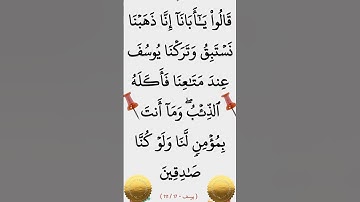 قَالُوا۟ يَـٰٓأَبَانَآ إِنَّا ذَهَبْنَا
نَسْتَبِقُ وَتَرَكْنَا يُوسُفَ
عِندَ مَتَـٰعِنَا فَأَكَلَهُ
ٱلذِّئْبُ ۖ وَمَآ أَنتَ
بِمُؤْمِنٍ لَّنَا وَلَوْ كُنَّا
صَـٰدِقِينَ